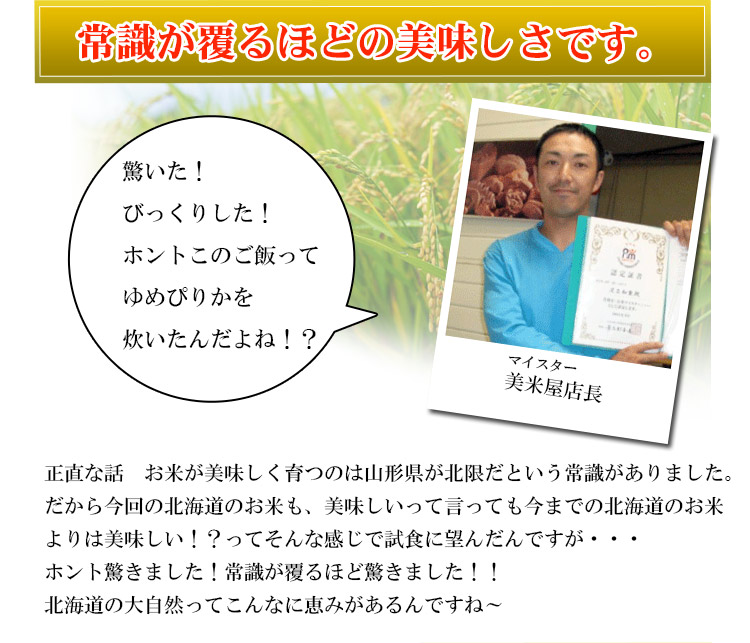 常識が覆るほどの美味しさです。
驚いた！
びっくりした！
ホントこのご飯って
ゆめぴりかを
炊いたんだよね！？
認定証書
マイスター
美米屋店長
正直な話　お米が美味しく育つのは山形県が北限だという常識がありました。
だから今回の北海道のお米も、美味しいって言っても今までの北海道のお米
よりは美味しい！？ってそんな感じで試食に望んだんですが・・・
ホント驚きました！常識が覆るほど驚きました！！
北海道の大自然ってこんなに恵みがあるんですね～